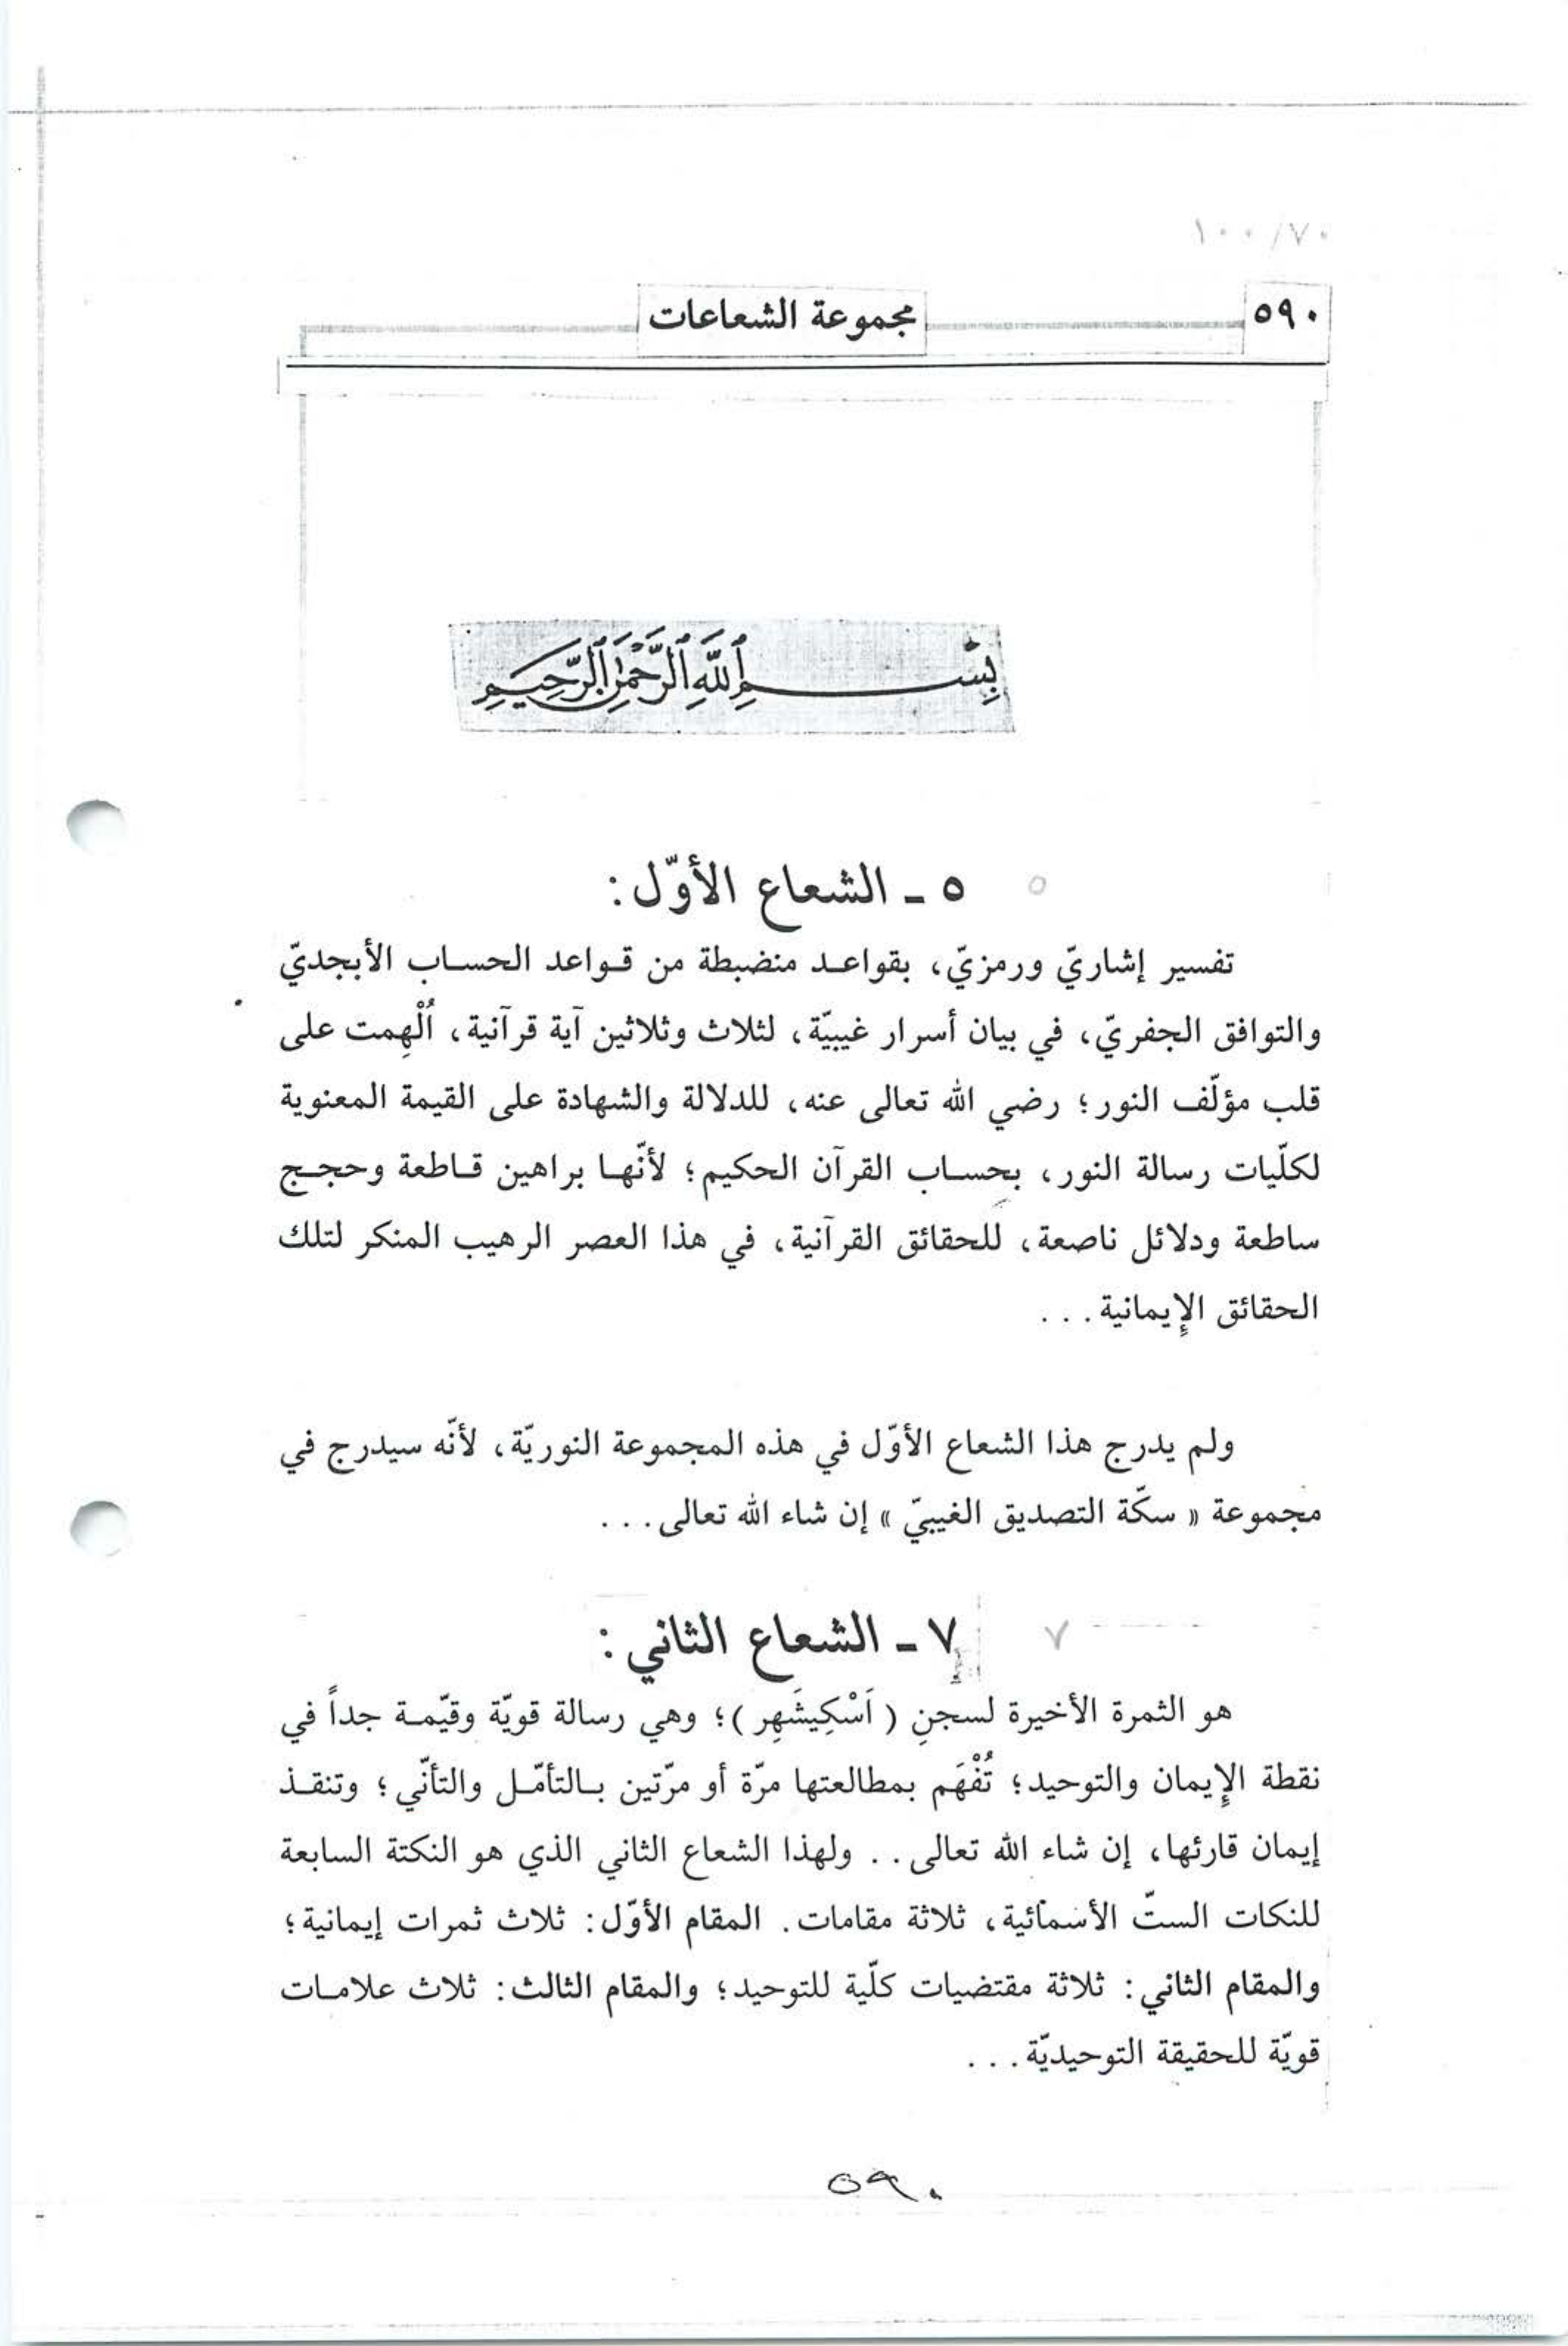 ١٠٠/٧٠
٥٩٠
مجموعة الشعاعات
بِسْمِ ٱللَّهِ ٱلرَّحْمَٰنِ ٱلرَّحِيمِ
٥
٥ ـ الشعاع الأوّل:
تفسير إشاريّ ورمزيّ، بقواعد منضبطة من قواعد الحساب الأبجديّ
والتوافق الجفريّ، في بيان أسرار غيبيّة، لثلاث وثلاثين آية قرآنية، اُلْهِمت على
قلب مؤلّف النور؛ رضي الله تعالى عنه، للدلالة والشهادة على القيمة المعنوية
لكلّيات رسالة النور، بحساب القرآن الحكيم؛ لأنّها براهين قاطعة وحجج
ساطعة ودلائل ناصعة، للحقائق القرآنية، في هذا العصر الرهيب المنكر لتلك
الحقائق الإيمانية...
ولم يدرج هذا الشعاع الأوّل في هذه المجموعة النوريّة، لأنّه سيدرج في
مجموعة « سكّة التصديق الغيبيّ » إن شاء الله تعالى...
٧
٧ ـ الشعاع الثاني:
هو الثمرة الأخيرة لسجنِ ( اَسْكِيشَهِر )؛ وهي رسالة قويّة وقيّمة جداً في
نقطة الإيمان والتوحيد؛ تُفْهَم بمطالعتها مرّة أو مرّتين بالتأمّل والتأنّي؛ وتنقذ
إيمان قارئها، إن شاء الله تعالى.. ولهذا الشعاع الثاني الذي هو النكتة السابعة
للنكات الستّ الأسمائية، ثلاثة مقامات. المقام الأوّل: ثلاث ثمرات إيمانية؛
والمقام الثاني: ثلاثة مقتضيات كلّية للتوحيد؛ والمقام الثالث: ثلاث علامات
قويّة للحقيقة التوحيديّة...
٥٩٠